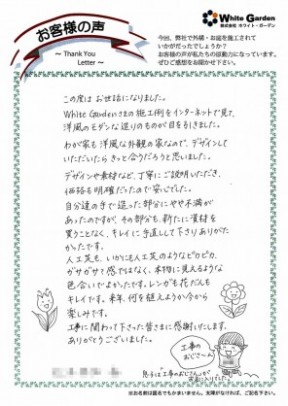 お客様の声
～ Thank You
Letter ～
White Garden
株式会社 ホワイト・ガーデン
今回、弊社で外構・お庭を施工されて
いかがだったでしょうか？
お客様の声が私たちの原動力になっています。
ぜひご感想をお聞かせ下さい。
この度は お世話になりました。
White Gardenさまの施工例をインターネットで見て、
洋風のモダンな造りのものが目を引きました。
わが家も洋風な外観の家なので、デザインして
いただいたら きっと合うだろうと思いました。
デザインや素材など、丁寧にご説明いただき、
価格も明確だったので安心でした。
自分達の手で造った部分にやや不満が
あったのですが、その部分も、新たに資材を
買うことなく、キレイに手直しして下さりありがた
かったです。
人工芝も、いかにも人工芝のようなピカピカ、
ガサガサ感ではなく、本物に見えるような
色合いでよかったです。レンガも花だんも
キレイです。来年、何を植えようか今から
楽しみです。
工事に関わって下さった皆さまに感謝いたします。
ありがとうございました。
工事の
おじさーん!
息子は「工事のおじさん」が